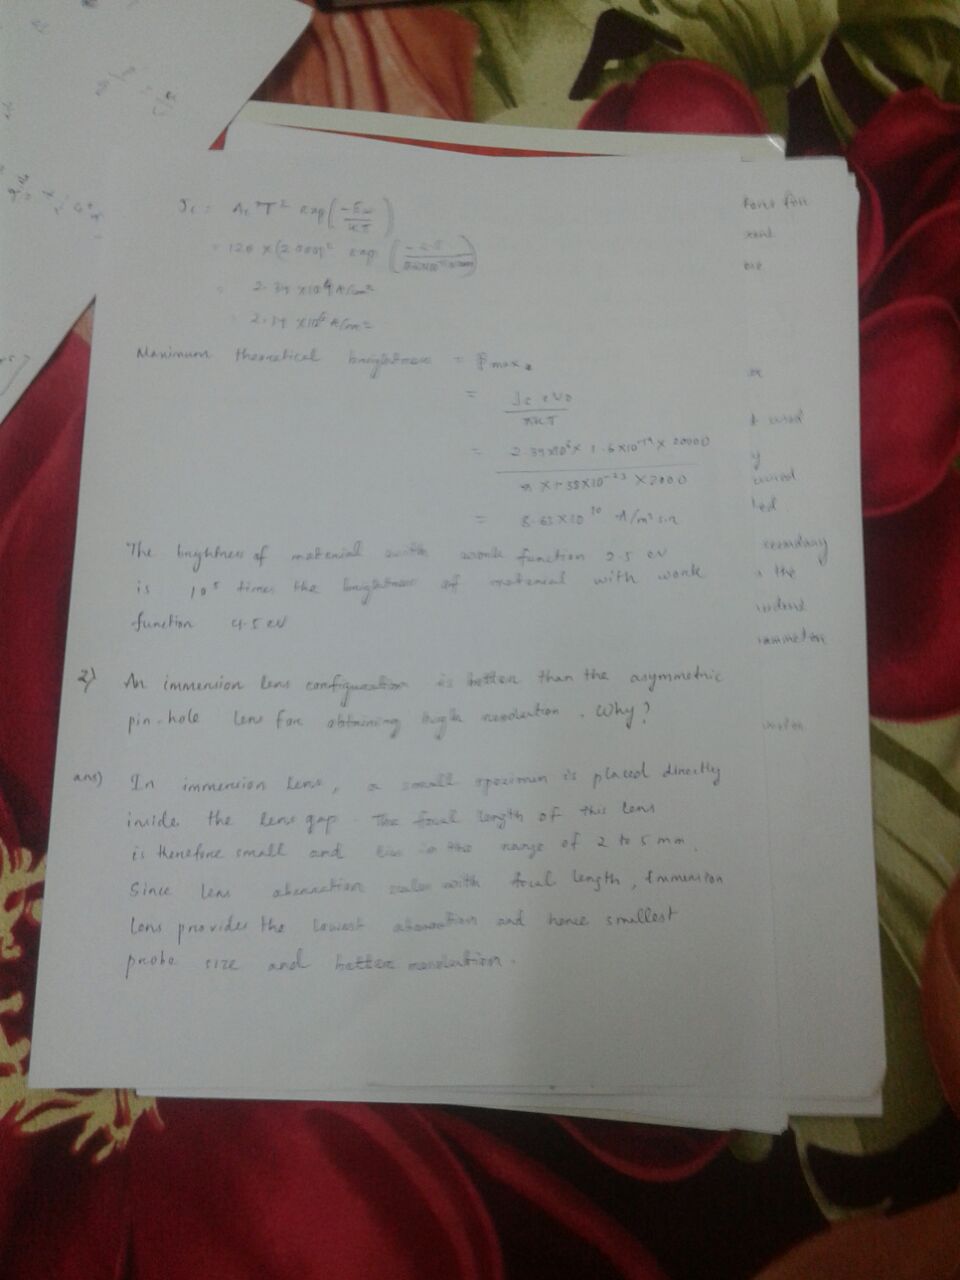 Jc = Ac T² exp(-Ew/KT)
= 120 × (2000)² exp
= 2.39 × 10 A/cm²
= 2.39 × 10⁶ A/m²
Maximum theoretical brightness = βmax
= Jc eV0
πKT
= 2.39×10⁶ × 1.6×10⁻¹⁹ × 20000
π × 1.38×10⁻²³ × 2000
= 8.63×10¹⁰ A/m² sr
The brightness of material with work function 2.5 eV
is 10⁵ times the brightness of material with work
function 4.5 eV
2) An immersion lens configuration is better than the asymmetric
pin-hole lens for obtaining high resolution. Why?
ans) In immersion lens, a small specimen is placed directly
inside the lens gap. The focal length of this lens
is therefore small and lies in the range of 2 to 5 mm.
Since lens aberration scales with focal length, immersion
lens provides the lowest aberration and hence smallest
probe size and better resolution.
or
secondary
the